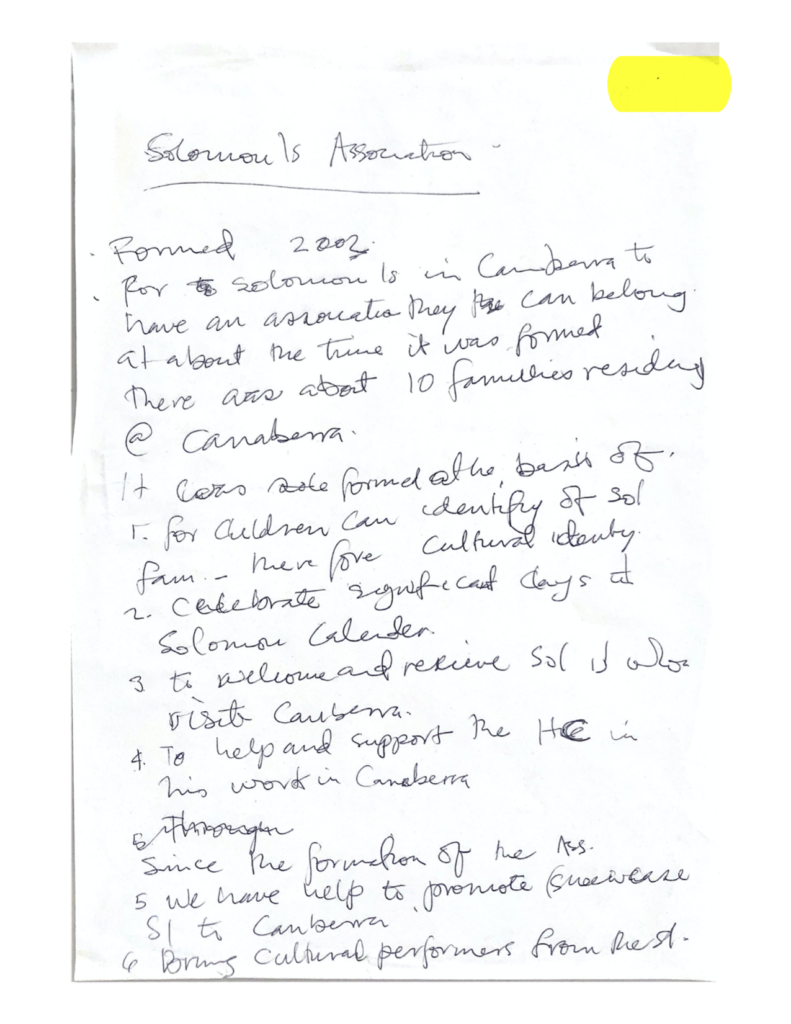 Solomon Is Association
. Formed 2002.
. for Solomon Is in Canberra to
have an association they can belong.
at about the time it was formed
there was about 10 families residing
@ Canaberra.
It was formed @ the basis of.
1. for children can identify of Sol
fam. - therefore cultural identity.
2. Celebrate significant days at
Solomon Calender.
3 to welcome and recieve Sol is who
visits Canberra.
4. To help and support the HC in
his work in Canaberra
5 through
Since the formation of the Ass.
5 We have help to promote (showcase
SI to Canberra.
6 Boring cultural performers from the SI.